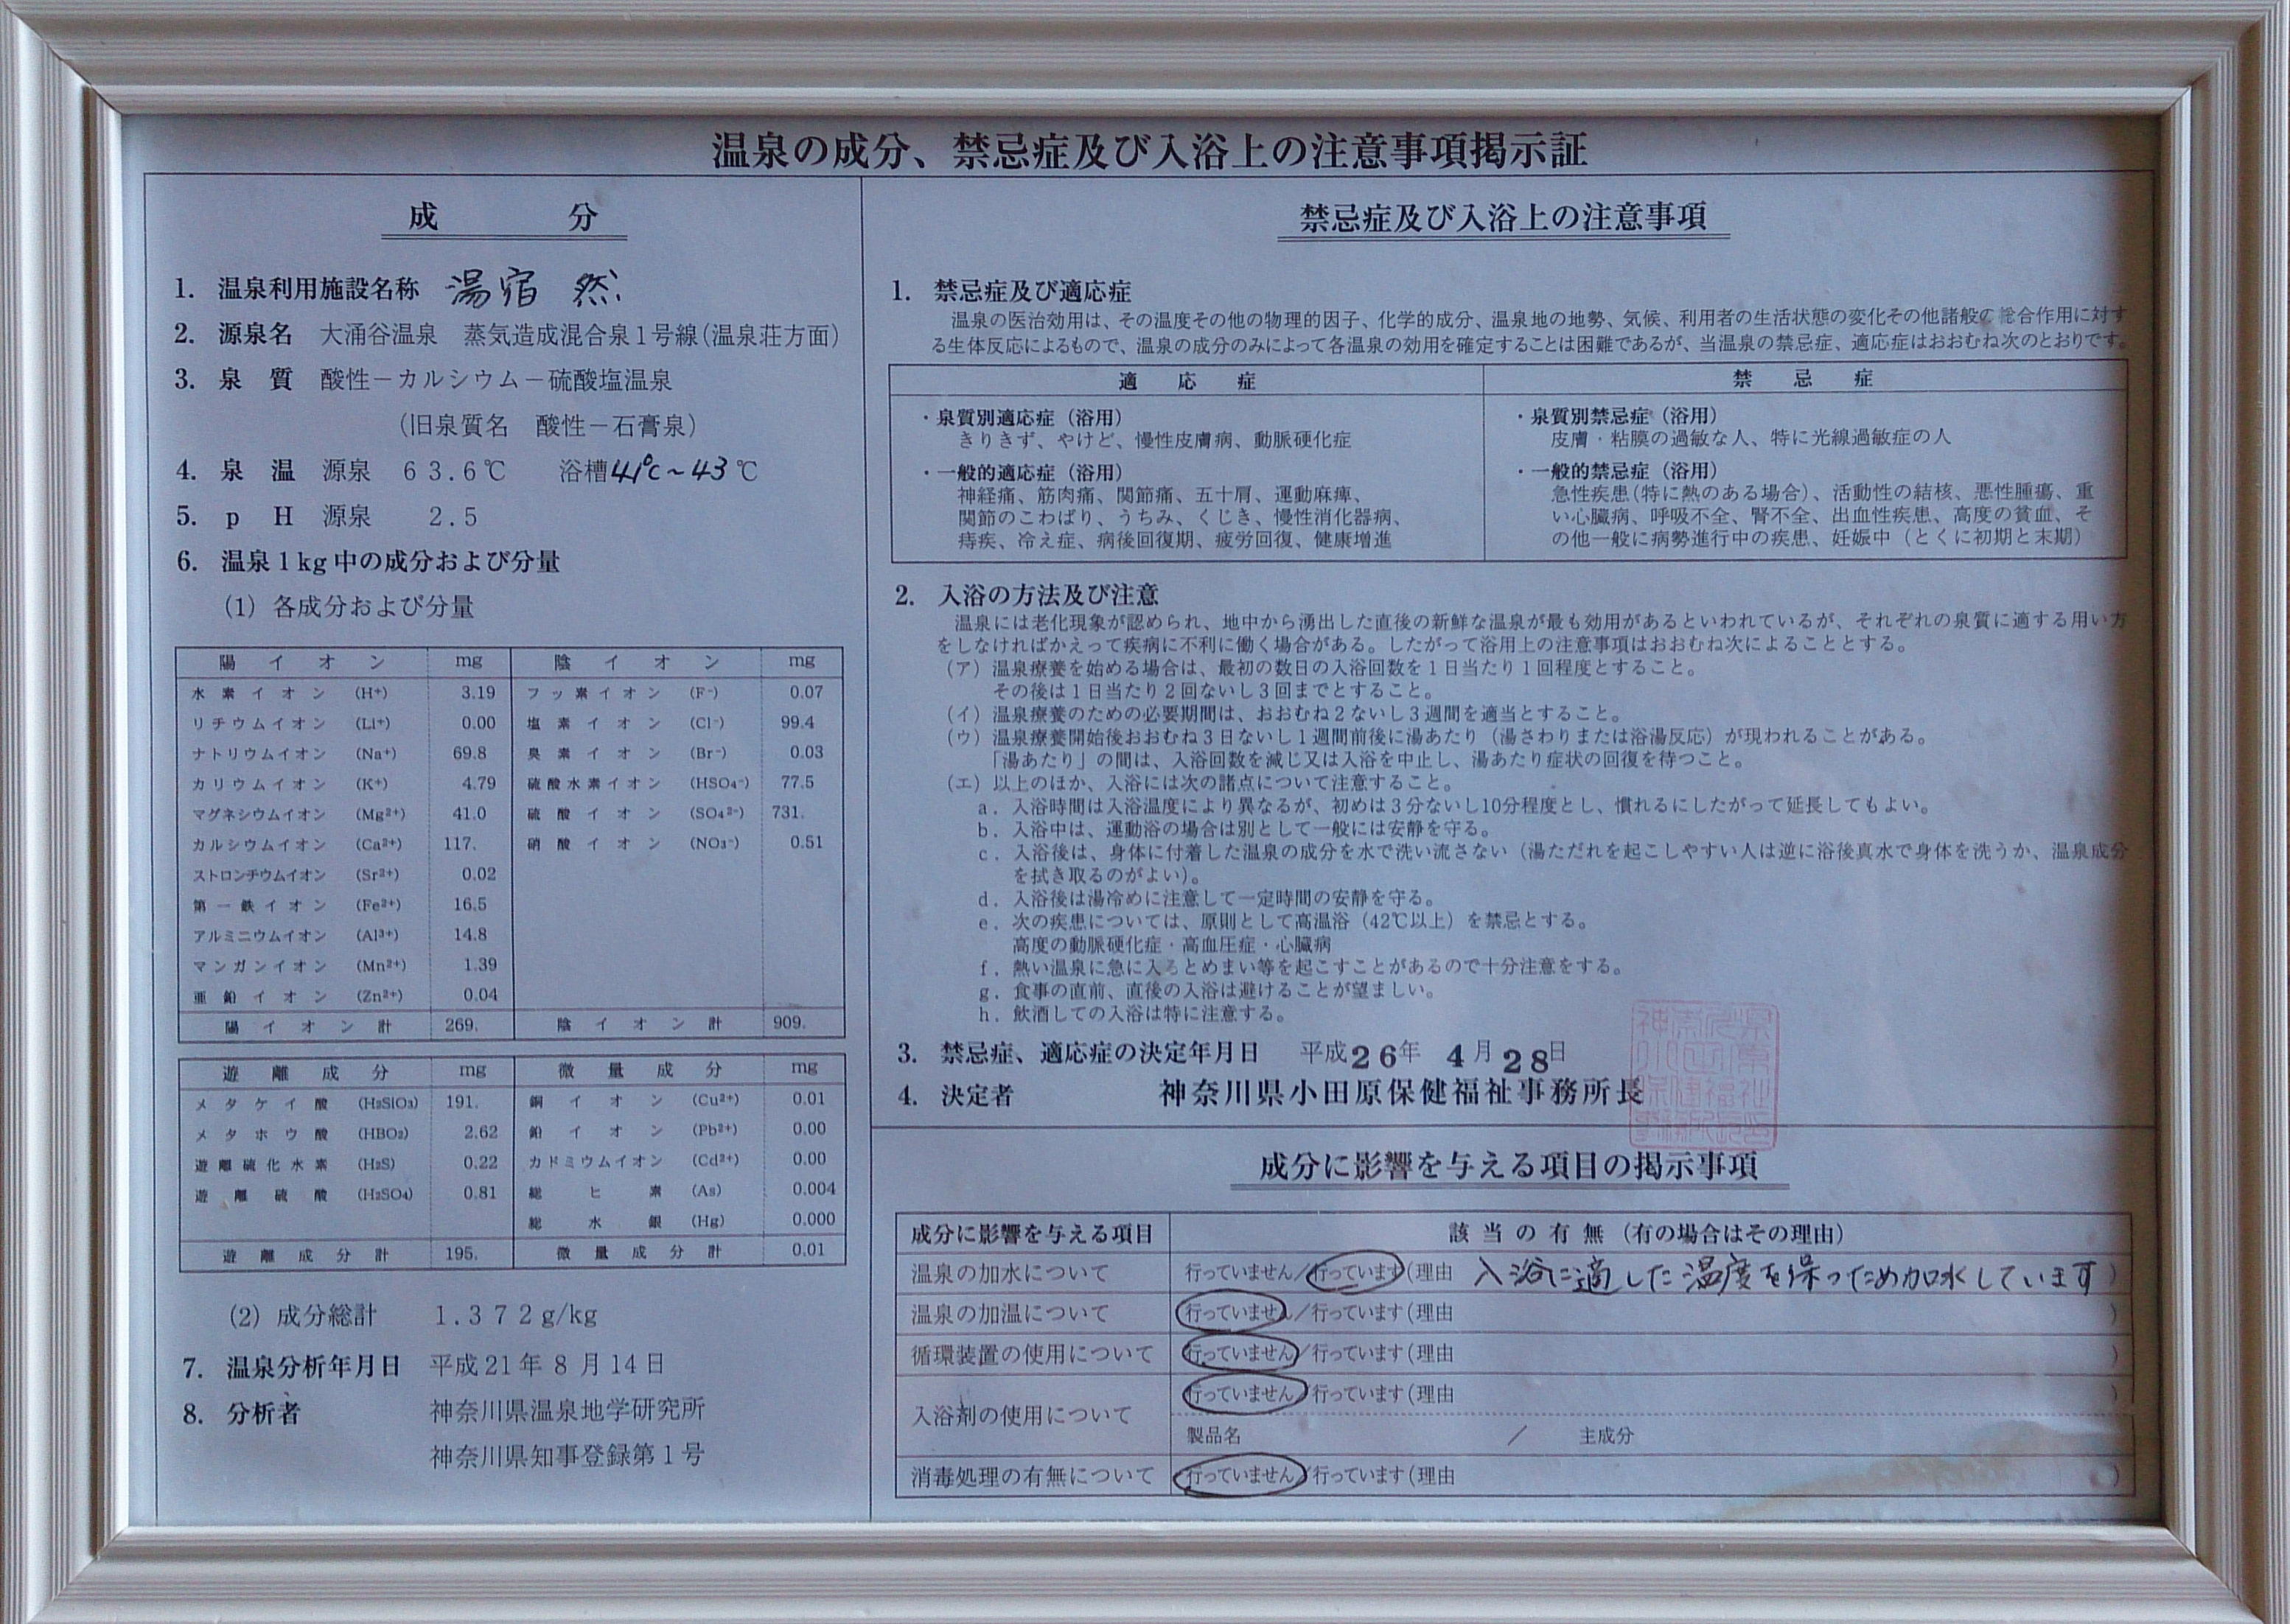 温泉の成分、禁忌症及び入浴上の注意事項掲示証
成分
1. 温泉利用施設名称 湯宿 然
2. 源泉名 大涌谷温泉 蒸気造成混合泉1号線(温泉荘方面)
3. 泉質 酸性－カルシウム－硫酸塩温泉
(旧泉質名 酸性－石膏泉)
4. 泉温 源泉 63.6℃ 浴槽41℃～43℃
5. pH 源泉 2.5
6. 温泉1kg中の成分および分量
(1) 各成分および分量
陽イオン mg 陰イオン mg
水素イオン (H⁺) 3.19 フッ素イオン (F⁻) 0.07
リチウムイオン (Li⁺) 0.00 塩素イオン (Cl⁻) 99.4
ナトリウムイオン (Na⁺) 69.8 臭素イオン (Br⁻) 0.03
カリウムイオン (K⁺) 4.79 硫酸水素イオン (HSO₄⁻) 77.5
マグネシウムイオン (Mg²⁺) 41.0 硫酸イオン (SO₄²⁻) 731.
カルシウムイオン (Ca²⁺) 117. 硝酸イオン (NO₃⁻) 0.51
ストロンチウムイオン (Sr²⁺) 0.02
第一鉄イオン (Fe²⁺) 16.5
アルミニウムイオン (Al³⁺) 14.8
マンガンイオン (Mn²⁺) 1.39
亜鉛イオン (Zn²⁺) 0.04
陽イオン計 269. 陰イオン計 909.
遊離成分 mg 微量成分 mg
メタケイ酸 (H₂SiO₃) 191. 銅イオン (Cu²⁺) 0.01
メタホウ酸 (HBO₂) 2.62 鉛イオン (Pb²⁺) 0.00
遊離硫化水素 (H₂S) 0.22 カドミウムイオン (Cd²⁺) 0.00
遊離硫酸 (H₂SO₄) 0.81 総ヒ素 (As) 0.004
総水銀 (Hg) 0.000
遊離成分計 195. 微量成分計 0.01
(2) 成分総計 1.372g/kg
7. 温泉分析年月日 平成21年8月14日
8. 分析者 神奈川県温泉地学研究所
神奈川県知事登録第1号
禁忌症及び入浴上の注意事項
1. 禁忌症及び適応症
温泉の医治効用は、その温度その他の物理的因子、化学的成分、温泉地の地勢、気候、利用者の生活状態の変化その他諸般の総合作用に対す
る生体反応によるもので、温泉の成分のみによって各温泉の効用を確定することは困難であるが、当温泉の禁忌症、適応症はおおむね次のとおりです。
適応症 禁忌症
・泉質別適応症（浴用）
きりきず、やけど、慢性皮膚病、動脈硬化症
・一般的適応症（浴用）
神経痛、筋肉痛、関節痛、五十肩、運動麻痺、
関節のこわばり、うちみ、くじき、慢性消化器病、
痔疾、冷え症、病後回復期、疲労回復、健康増進
・泉質別禁忌症（浴用）
皮膚・粘膜の過敏な人、特に光線過敏症の人
・一般的禁忌症（浴用）
急性疾患(特に熱のある場合)、活動性の結核、悪性腫瘍、重
い心臓病、呼吸不全、腎不全、出血性疾患、高度の貧血、そ
の他一般に病勢進行中の疾患、妊娠中（とくに初期と末期）
2. 入浴の方法及び注意
温泉には老化現象が認められ、地中から湧出した直後の新鮮な温泉が最も効用があるといわれているが、それぞれの泉質に適する用い方
をしなければかえって疾病に不利に働く場合がある。したがって浴用上の注意事項はおおむね次によることとする。
（ア）温泉療養を始める場合は、最初の数日の入浴回数を1日当たり1回程度とすること。
その後は1日当たり2回ないし3回までとすること。
（イ）温泉療養のための必要期間は、おおむね2ないし3週間を適当とすること。
（ウ）温泉療養開始後おおむね3日ないし1週間前後に湯あたり（湯さわりまたは浴湯反応）が現われることがある。
「湯あたり」の間は、入浴回数を減じ又は入浴を中止し、湯あたり症状の回復を待つこと。
（エ）以上のほか、入浴には次の諸点について注意すること。
a．入浴時間は入浴温度により異なるが、初めは3分ないし10分程度とし、慣れるにしたがって延長してもよい。
b．入浴中は、運動浴の場合は別として一般には安静を守る。
c．入浴後は、身体に付着した温泉の成分を水で洗い流さない（湯ただれを起こしやすい人は逆に浴後真水で身体を洗うか、温泉成分
を拭き取るのがよい）。
d．入浴後は湯冷めに注意して一定時間の安静を守る。
e．次の疾患については、原則として高温浴（42℃以上）を禁忌とする。
高度の動脈硬化症・高血圧症・心臓病
f．熱い温泉に急に入るとめまい等を起こすことがあるので十分注意をする。
g．食事の直前、直後の入浴は避けることが望ましい。
h．飲酒しての入浴は特に注意する。
3. 禁忌症、適応症の決定年月日 平成26年 4月28日
4. 決定者 神奈川県小田原保健福祉事務所長
成分に影響を与える項目の掲示事項
成分に影響を与える項目 該当の有無（有の場合はその理由）
温泉の加水について 行っていません／行っています(理由 入浴に適した温度を保つため加水しています)
温泉の加温について 行っていません／行っています(理由 )
循環装置の使用について 行っていません／行っています(理由 )
入浴剤の使用について 行っていません／行っています(理由 )
製品名 ／ 主成分
消毒処理の有無について 行っていません／行っています(理由 )